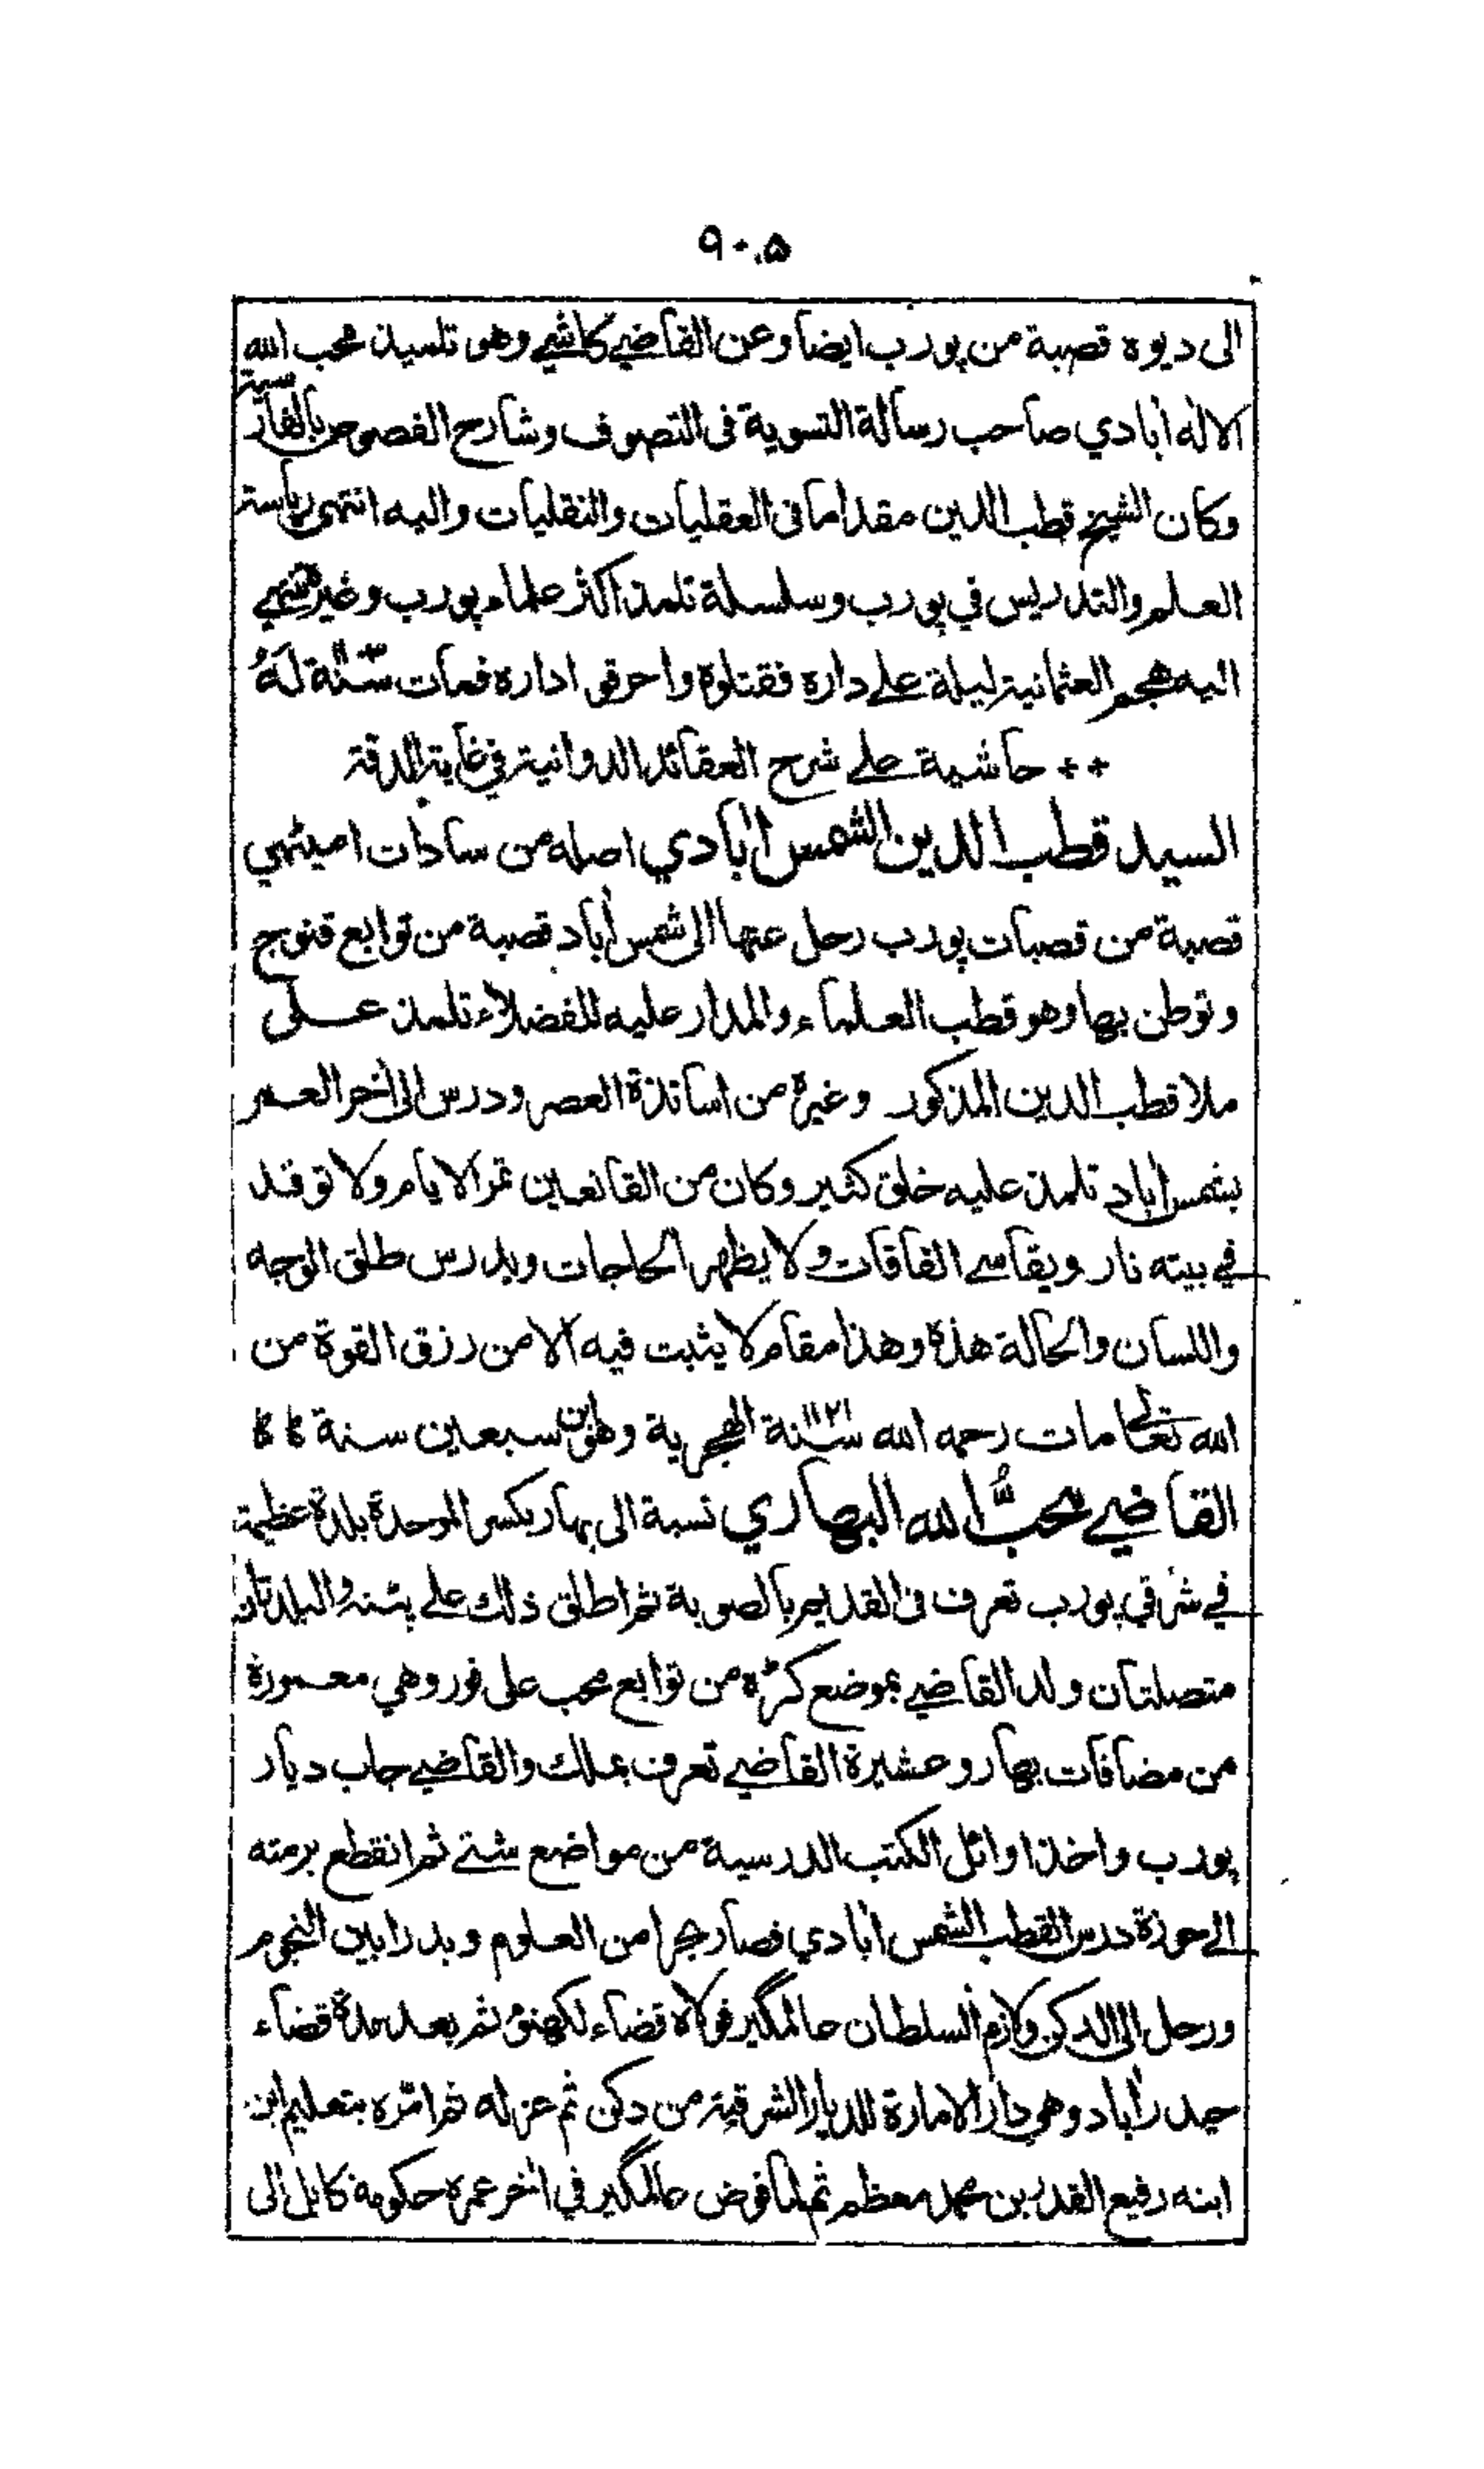 ٩٠٥
الى ديوه قصبة من پورب ايضا وعن القاضي كاشي وهو تلميذ محب الله
الاله آبادي صاحب رسالة التسوية فى التصوف وشارح الفصوص بالفارسية
وكان الشيخ قطب الدين مقداما فى العقليات والنقليات واليه انتهى رياسة
العلم والتدريس في پورب وسلسلة تلمذ اكثر علماء پورب وغيره تنتهي
اليه هجم العثمانية ليلة على داره فقتلوه واحرقوا داره فمات سنة له
حاشية على شرح العقائد الدوانية في غاية الدقة
السيد قطب الدين الشمس آبادي اصله من سادات اميٹهي
قصبة من قصبات پورب رحل عنها الى شمس آباد قصبة من توابع قنوج
وتوطن بها وهو قطب العلماء والمدار عليه للفضلاء تلمذ على
ملا قطب الدين المذكور وغيره من اساتذة العصر ودرس الى آخر العمر
بشمس آباد تلمذ عليه خلق كثير وكان من القانعين تمر الايام ولا توقد
في بيته نار ويقاسي الفاقات ولا يظهر الحاجات ويدرس طلق الوجه
واللسان والحالة هذه وهذا مقام لا يثبت فيه الا من رزق القوة من
الله تعالى مات رحمه الله سنة ١١٢١ الهجرية وهو ابن سبعين سنة
القاضي محبُّ الله البهاري نسبة الى بهار بكسر الموحدة بلدة عظيمة
في شرقي پورب تعرف فى القديم بالصوبة ثم اطلق ذلك على پٹنه والبلدتان
متصلتان ولد القاضي بموضع كڑه من توابع محب على فور وهي معمورة
من مضافات بهار وعشيرة القاضي تعرف بملك والقاضي جاب ديار
پورب واخذ اوائل الكتب الدرسية من مواضع شتى ثم انقطع برمته
الى حوزة درس القطب الشمس آبادي فصار بحرا من العلوم وبدرا بين النجوم
ورحل الى الدكن ولازم السلطان عالمگير فولاه قضاء لكهنؤ ثم بعد مدة قضاء
حيدرآباد وهي دار الامارة للديار الشرقية من دكن ثم عزله ثم امره بتعليم ابن
ابنه رفيع القدر بن محمد معظم ثم لما فوض عالمگير في آخر عمره حكومة كابل الى